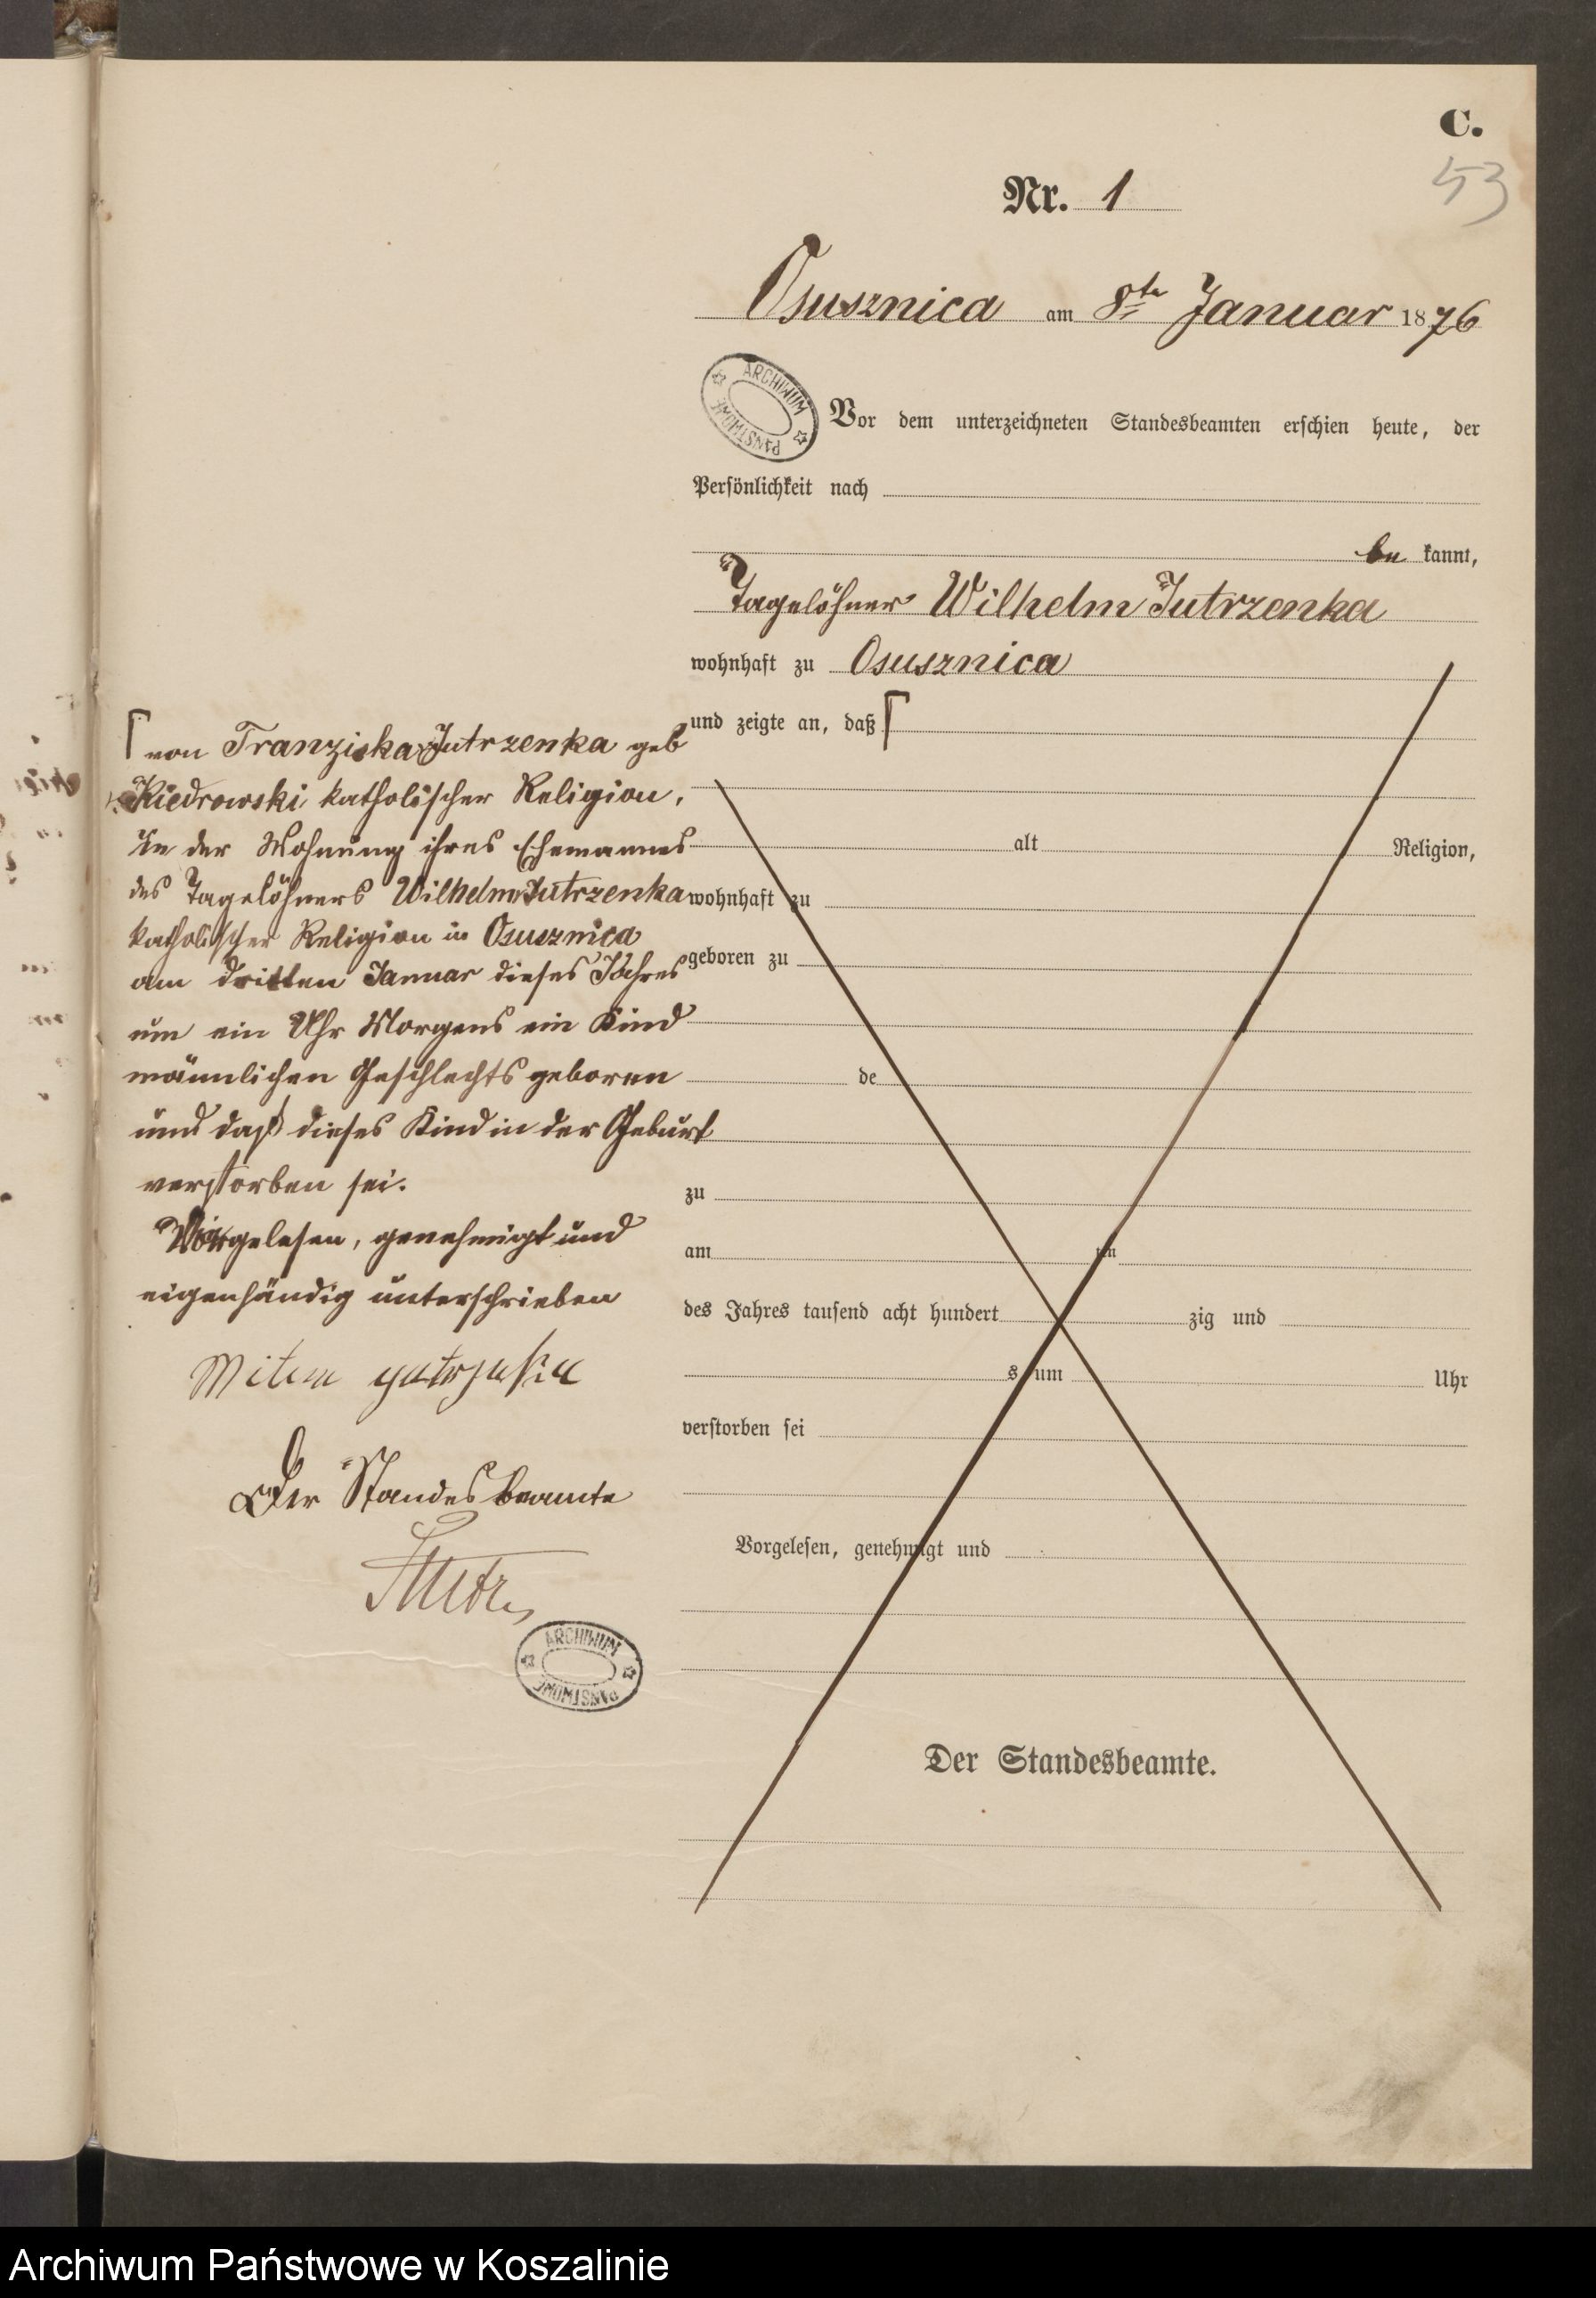 C.
53
Nr. 1
Osusznica am 8te Januar 1876
ARCHIWUM PAŃSTWOWE
Vor dem unterzeichneten Standesbeamten erschien heute, der
Persönlichkeit nach
be kannt,
Tagelöhner Wilhelm Jutrzenka
wohnhaft zu Osusznica
und zeigte an, daß
von Franziska Jutrzenka geb
Kiedrowski katholischer Religion,
In der Wohnung ihres Ehemannes
des Tagelöhners Wilhelm Jutrzenka
katholischer Religion in Osusznica
am dritten Januar dieses Jahres
um ein Uhr Morgens ein Kind
männlichen Geschlechts geboren
und daß dieses Kind in der Geburt
verstorben sei.
Vorgelesen, genehmigt und
eigenhändig unterschrieben
Der Standesbeamte
ARCHIWUM PAŃSTWOWE
alt Religion,
wohnhaft zu
geboren zu
de
zu
am im
des Jahres tausend acht hundert zig und
s um Uhr
verstorben sei
Vorgelesen, genehmigt und
Der Standesbeamte.
Archiwum Państwowe w Koszalinie